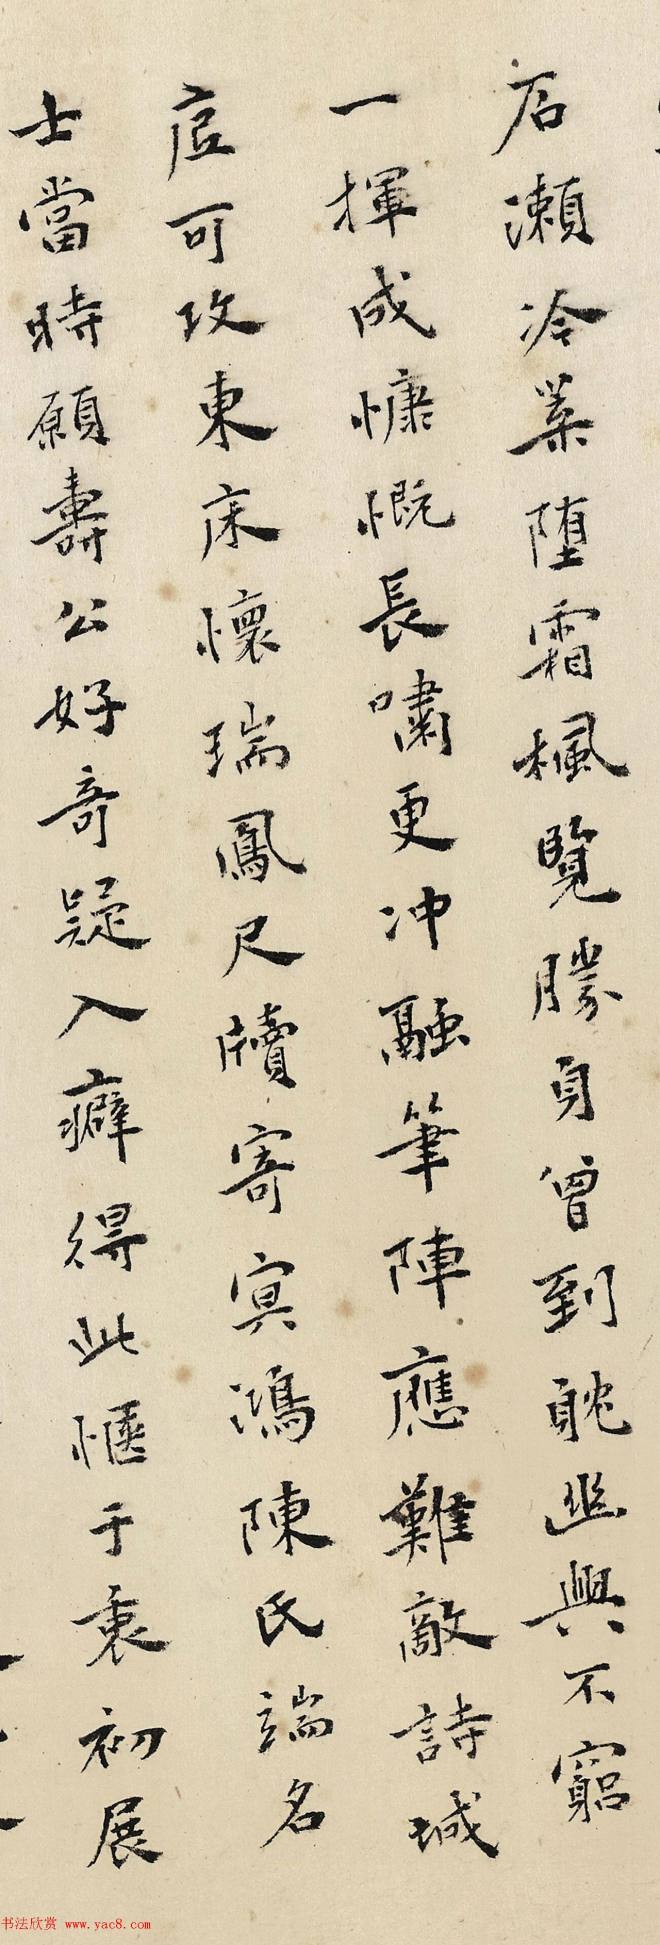 石瀨冷葉墮霜楓覽勝身曾到躭幽興不窮
一揮成慷慨長嘯更沖融筆陣應難敵詩城
可攻東床懷瑞鳳尺牘寄冥鴻陳氏端名
士當時願壽公好奇疑入癖得此愜于衷初展
书法欣赏 www.yac8.com